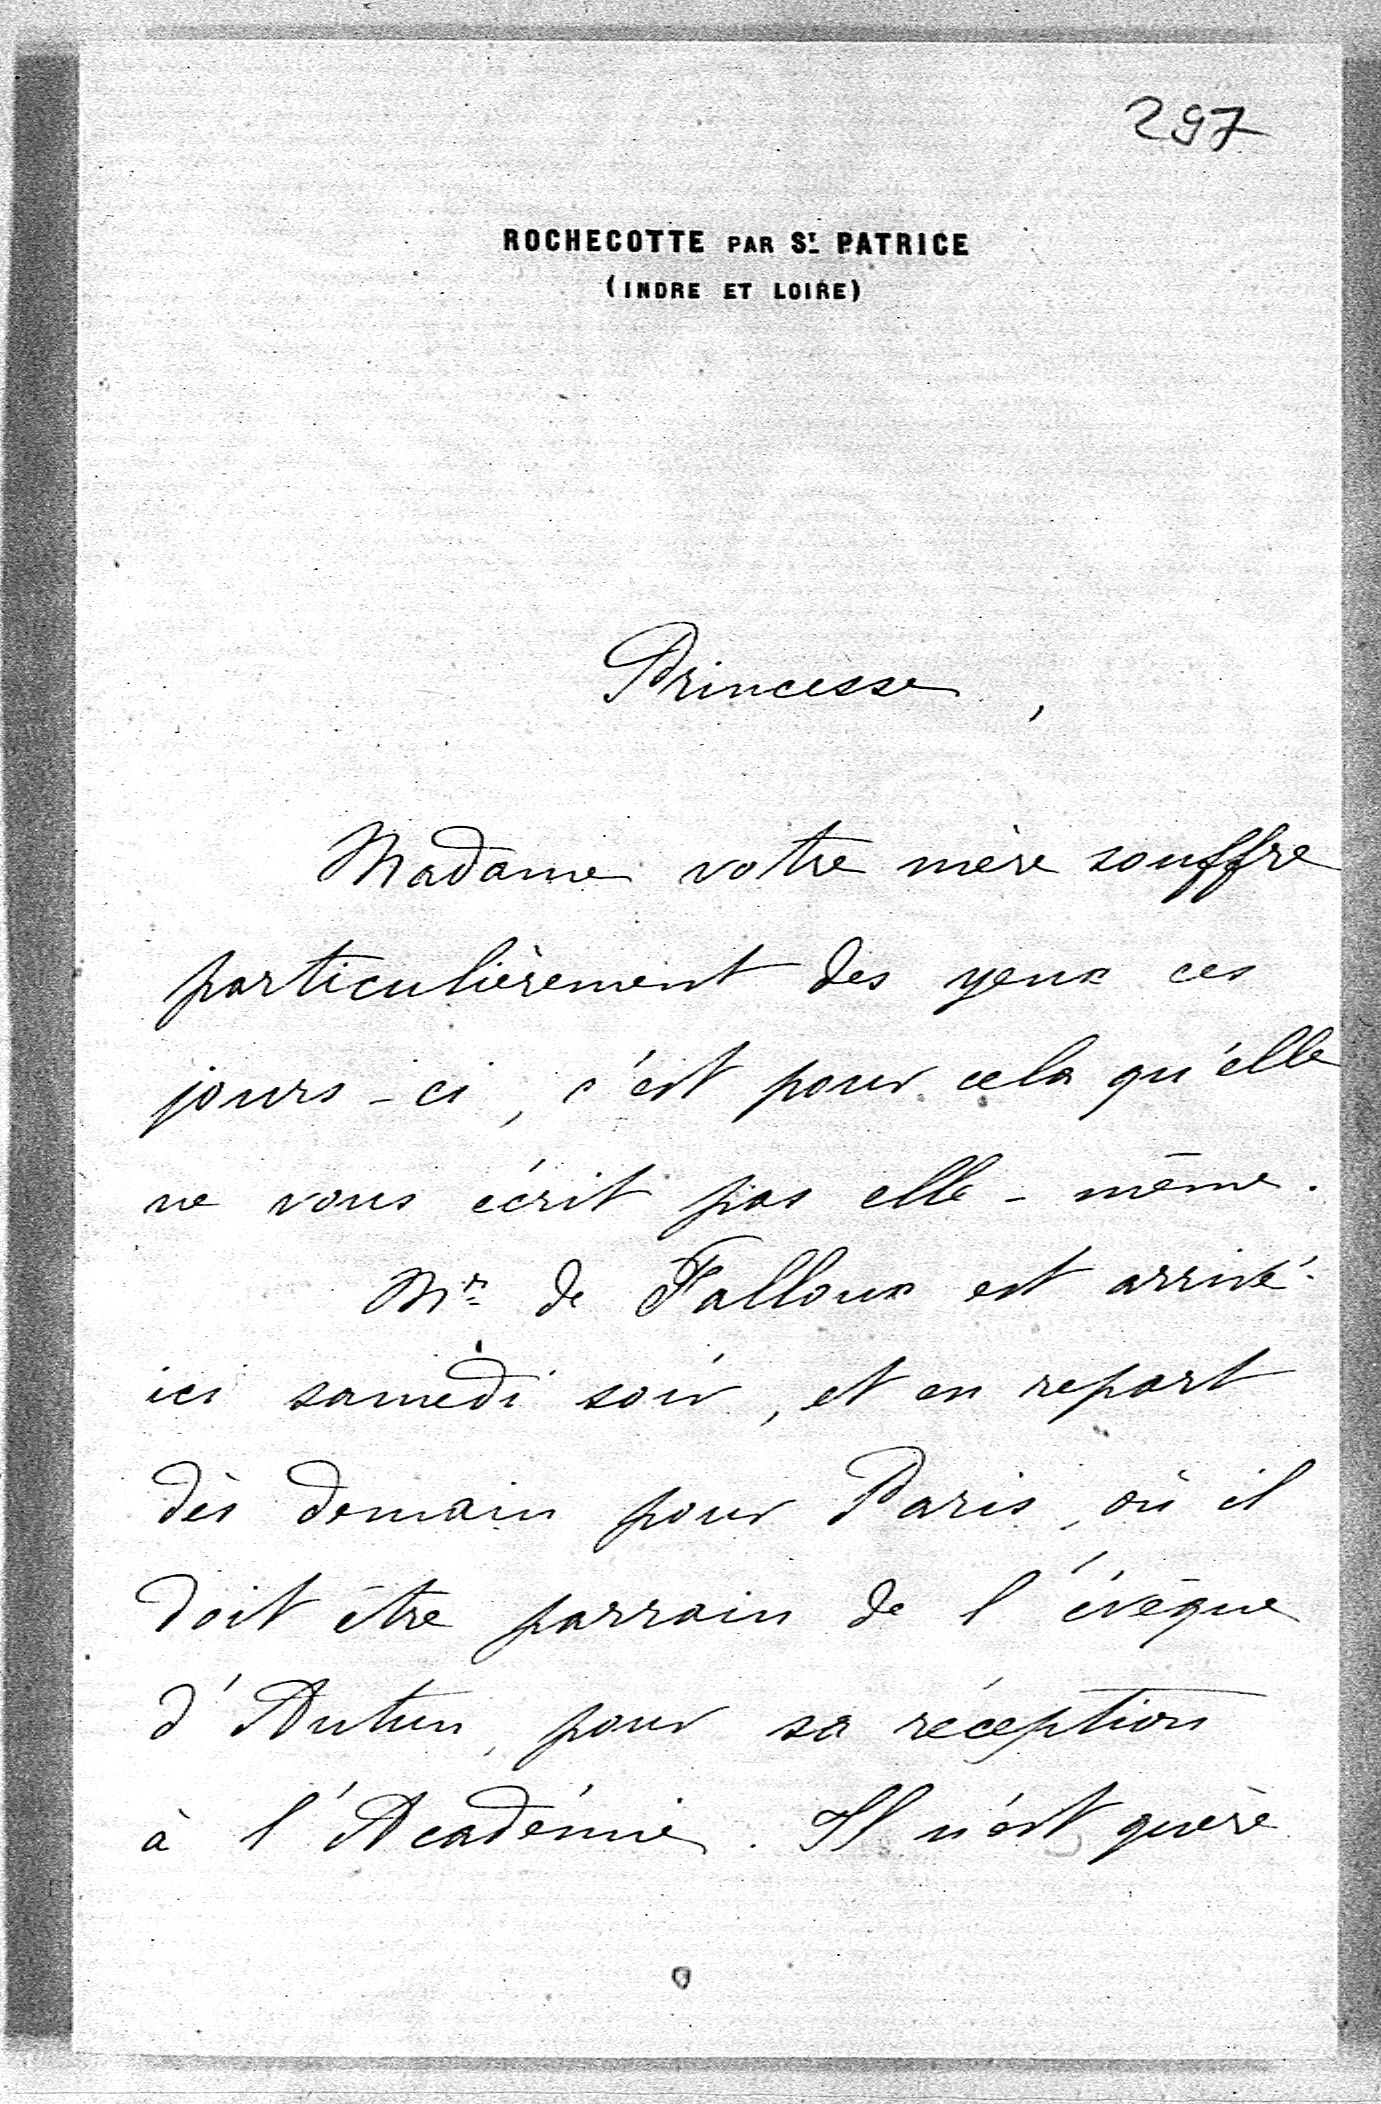 297
ROCHECOTTE PAR ST PATRICE
(INDRE ET LOIRE)
Princesse,
Madame votre mère souffre
particulièrement des yeux ces
jours-ci, c'est pour cela qu'elle
ne vous écrit pas elle-même.
Mr de Falloux est arrivé
ici samedi soir, et en repart
dès demain pour Paris, où il
doit être parrain de l'évêque
d'Autun, pour sa réception
à l'Académie. Il n'est guère